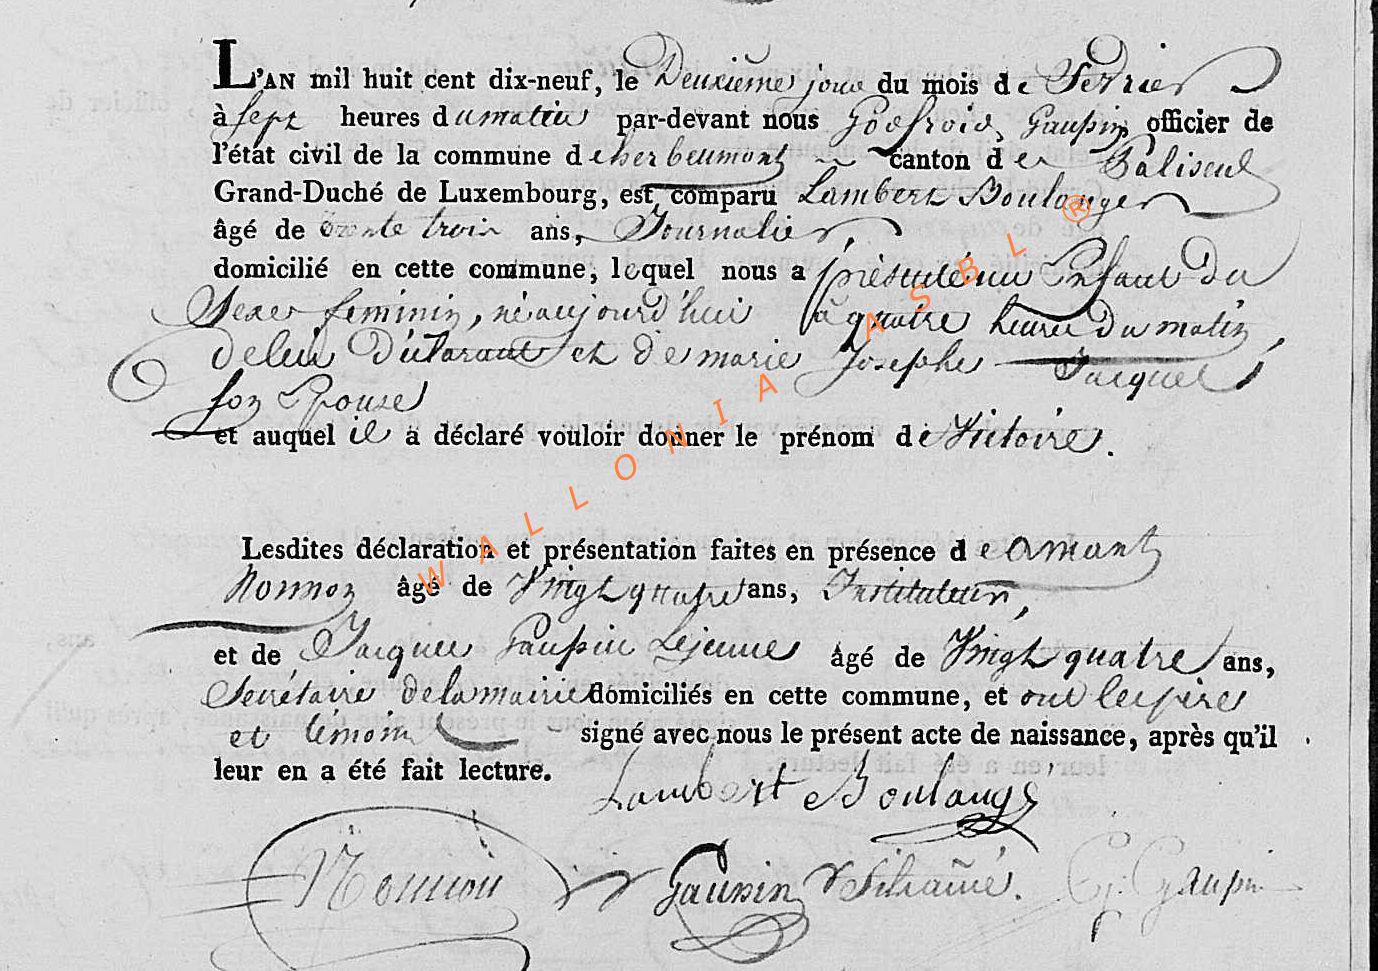 L'AN mil huit cent dix-neuf, le Deuxième jour du mois de Fevrier
à sept heures du matin par-devant nous Godfroid Gaupin officier de
l'état civil de la commune d'herbeumont canton de Paliseul
Grand-Duché de Luxembourg, est comparu Lambert Boulanger
âgé de trente trois ans, Journalier,
domicilié en cette commune, lequel nous a présenté un Enfant Du
Sexe feminin, né aujourd'hui à quatre heures Du matin,
de lui Déclarant et de marie Josephe Jacques
son Epouse
et auquel il a déclaré vouloir donner le prénom de Victoire.
Lesdites déclaration et présentation faites en présence de amant
Nonnon âgé de Vingt quatre ans, Instituteur,
et de Jacques Gaupin Lejeune âgé de Vingt quatre ans,
Secrétaire de la mairie domiciliés en cette commune, et ont les père
et temoin signé avec nous le présent acte de naissance, après qu'il
leur en a été fait lecture.
Lambert Boulange
Nonnon Gaupin G: Gaupin
WALLONIA ASBL ®